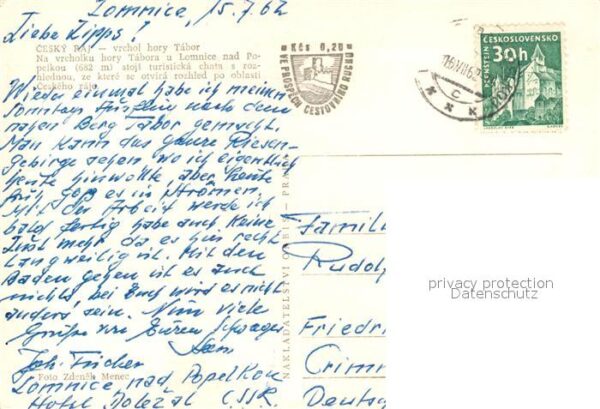 Lomnice, 15.7.62
Liebe Zipps!
ČESKÝ RÁJ — vrchol hory Tábor
Na vrcholku hory Tábora u Lomnice nad Po-
pelkou (682 m) stojí turistická chata s roz-
hlednou, ze které se otvírá rozhled po oblasti
Českého ráje
Wieder einmal habe ich meinen
Sonntags Ausflug nach dem
nahen Berg Tabor gemacht.
Man kann das ganze Riesen-
gebirge sehen wo ich eigentlich
heute hinwollte, aber heute
früh goß es in Strömen.
Mit der Arbeit werde ich
bald fertig habe auch keine
Lust mehr da es hier recht
langweilig ist. Mit den
Baden gehen ist es auch
nichts, bei Euch wird es nicht
anders sein. Nun viele
Grüße von Euren Schwager
Joh. Fischer
Foto Zdeněk Menec
Lomnice nad Popelkou
Hotel Dolezal ČSSR.
NAKLADATELSTVÍ ORBIS - PRA
Kčs 0,20
VE PROSPĚCH CESTOVNÍHO RUCHU
ČESKOSLOVENSKO
30h
PERNŠTEJN
Familie
Rudolf
Friedri
Crimm
Deutsc
privacy protection
Datenschutz